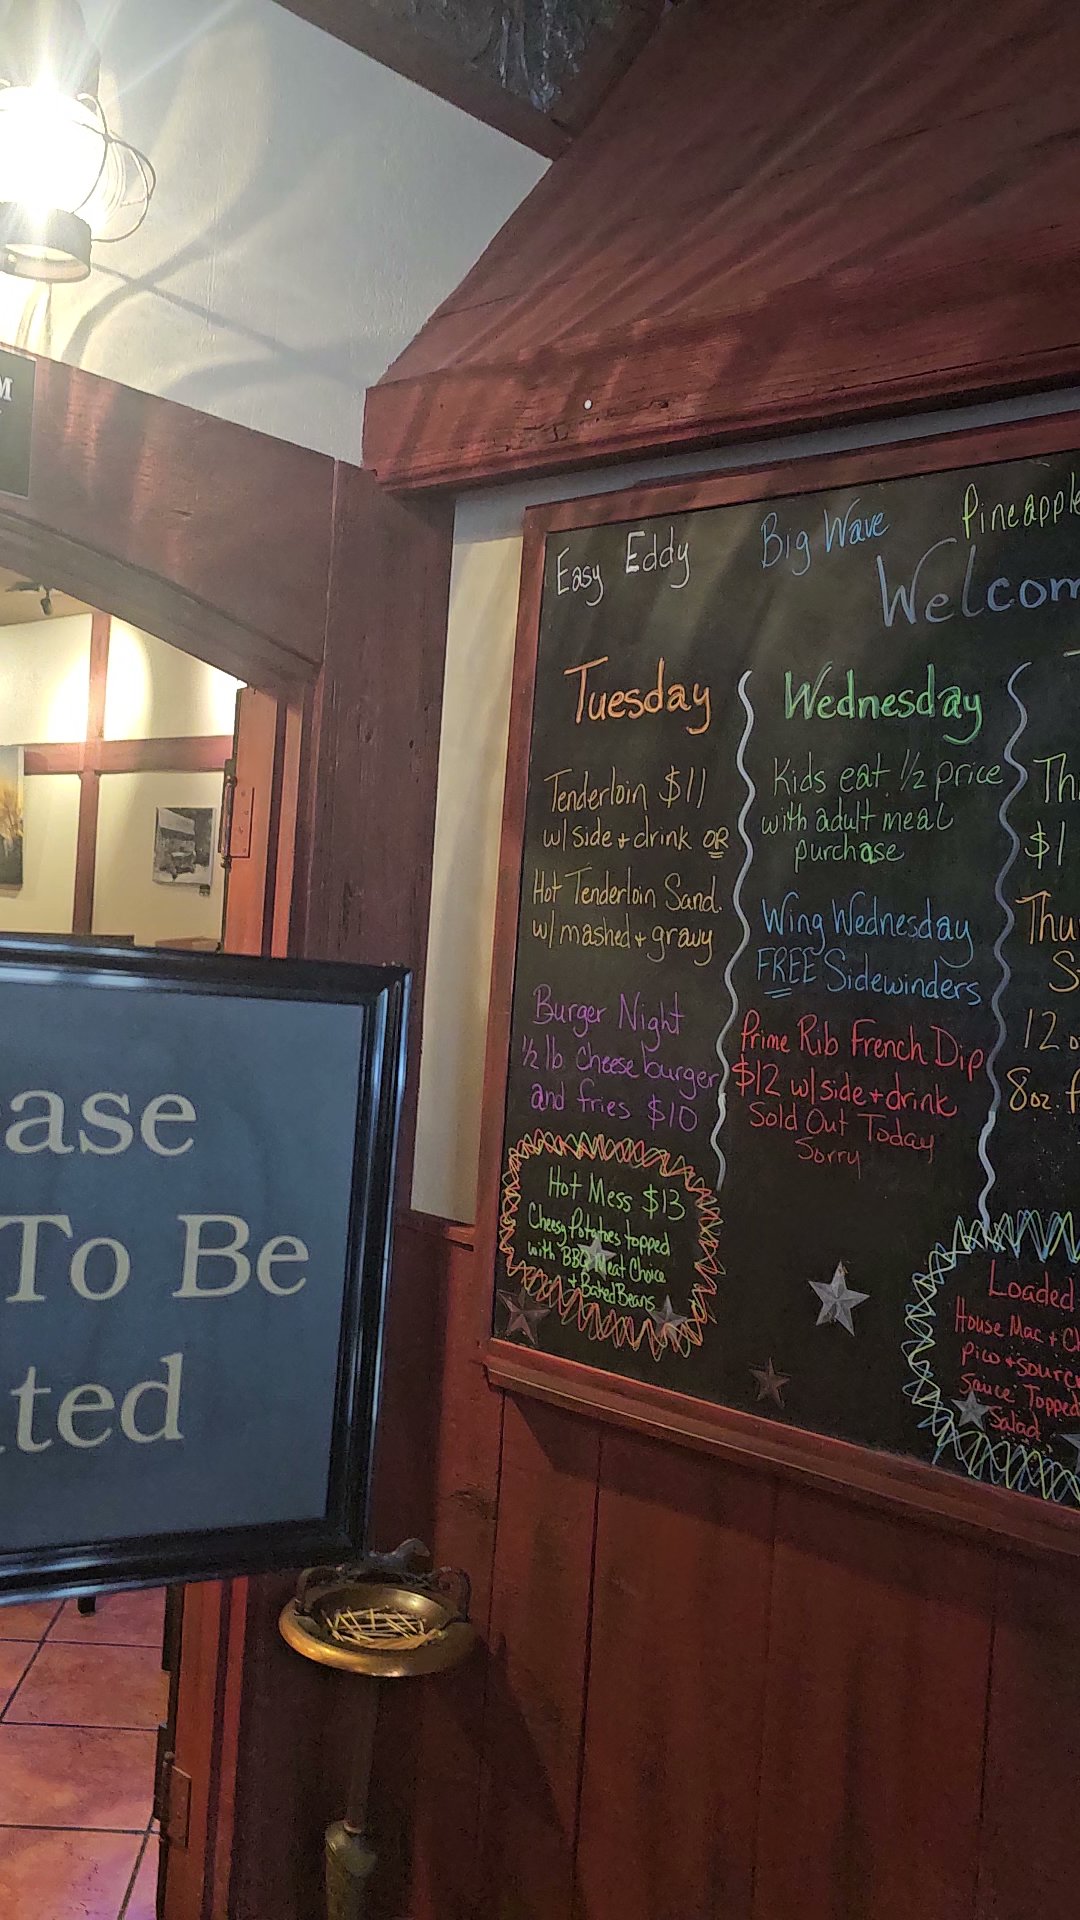 M
Easy Eddy
Big Wave
Pineapple
Welcom
Tuesday
Tenderloin $11
w/ side + drink OR
Hot Tenderloin Sand.
w/ mashed + gravy
Burger Night
1/2 lb cheeseburger
and fries $10
Hot Mess $13
Cheesy Potatoes topped
with BBQ Meat Choice
+ Baked Beans
Wednesday
Kids eat 1/2 price
with adult meal
purchase
Wing Wednesday
FREE Sidewinders
Prime Rib French Dip
$12 w/ side + drink
Sold Out Today
Sorry
Th
$1
Thu
S
12 o
8oz. f
Loaded
House Mac + Ch
pico + sour
Sauce Topped
Salad
ase
To Be
ted